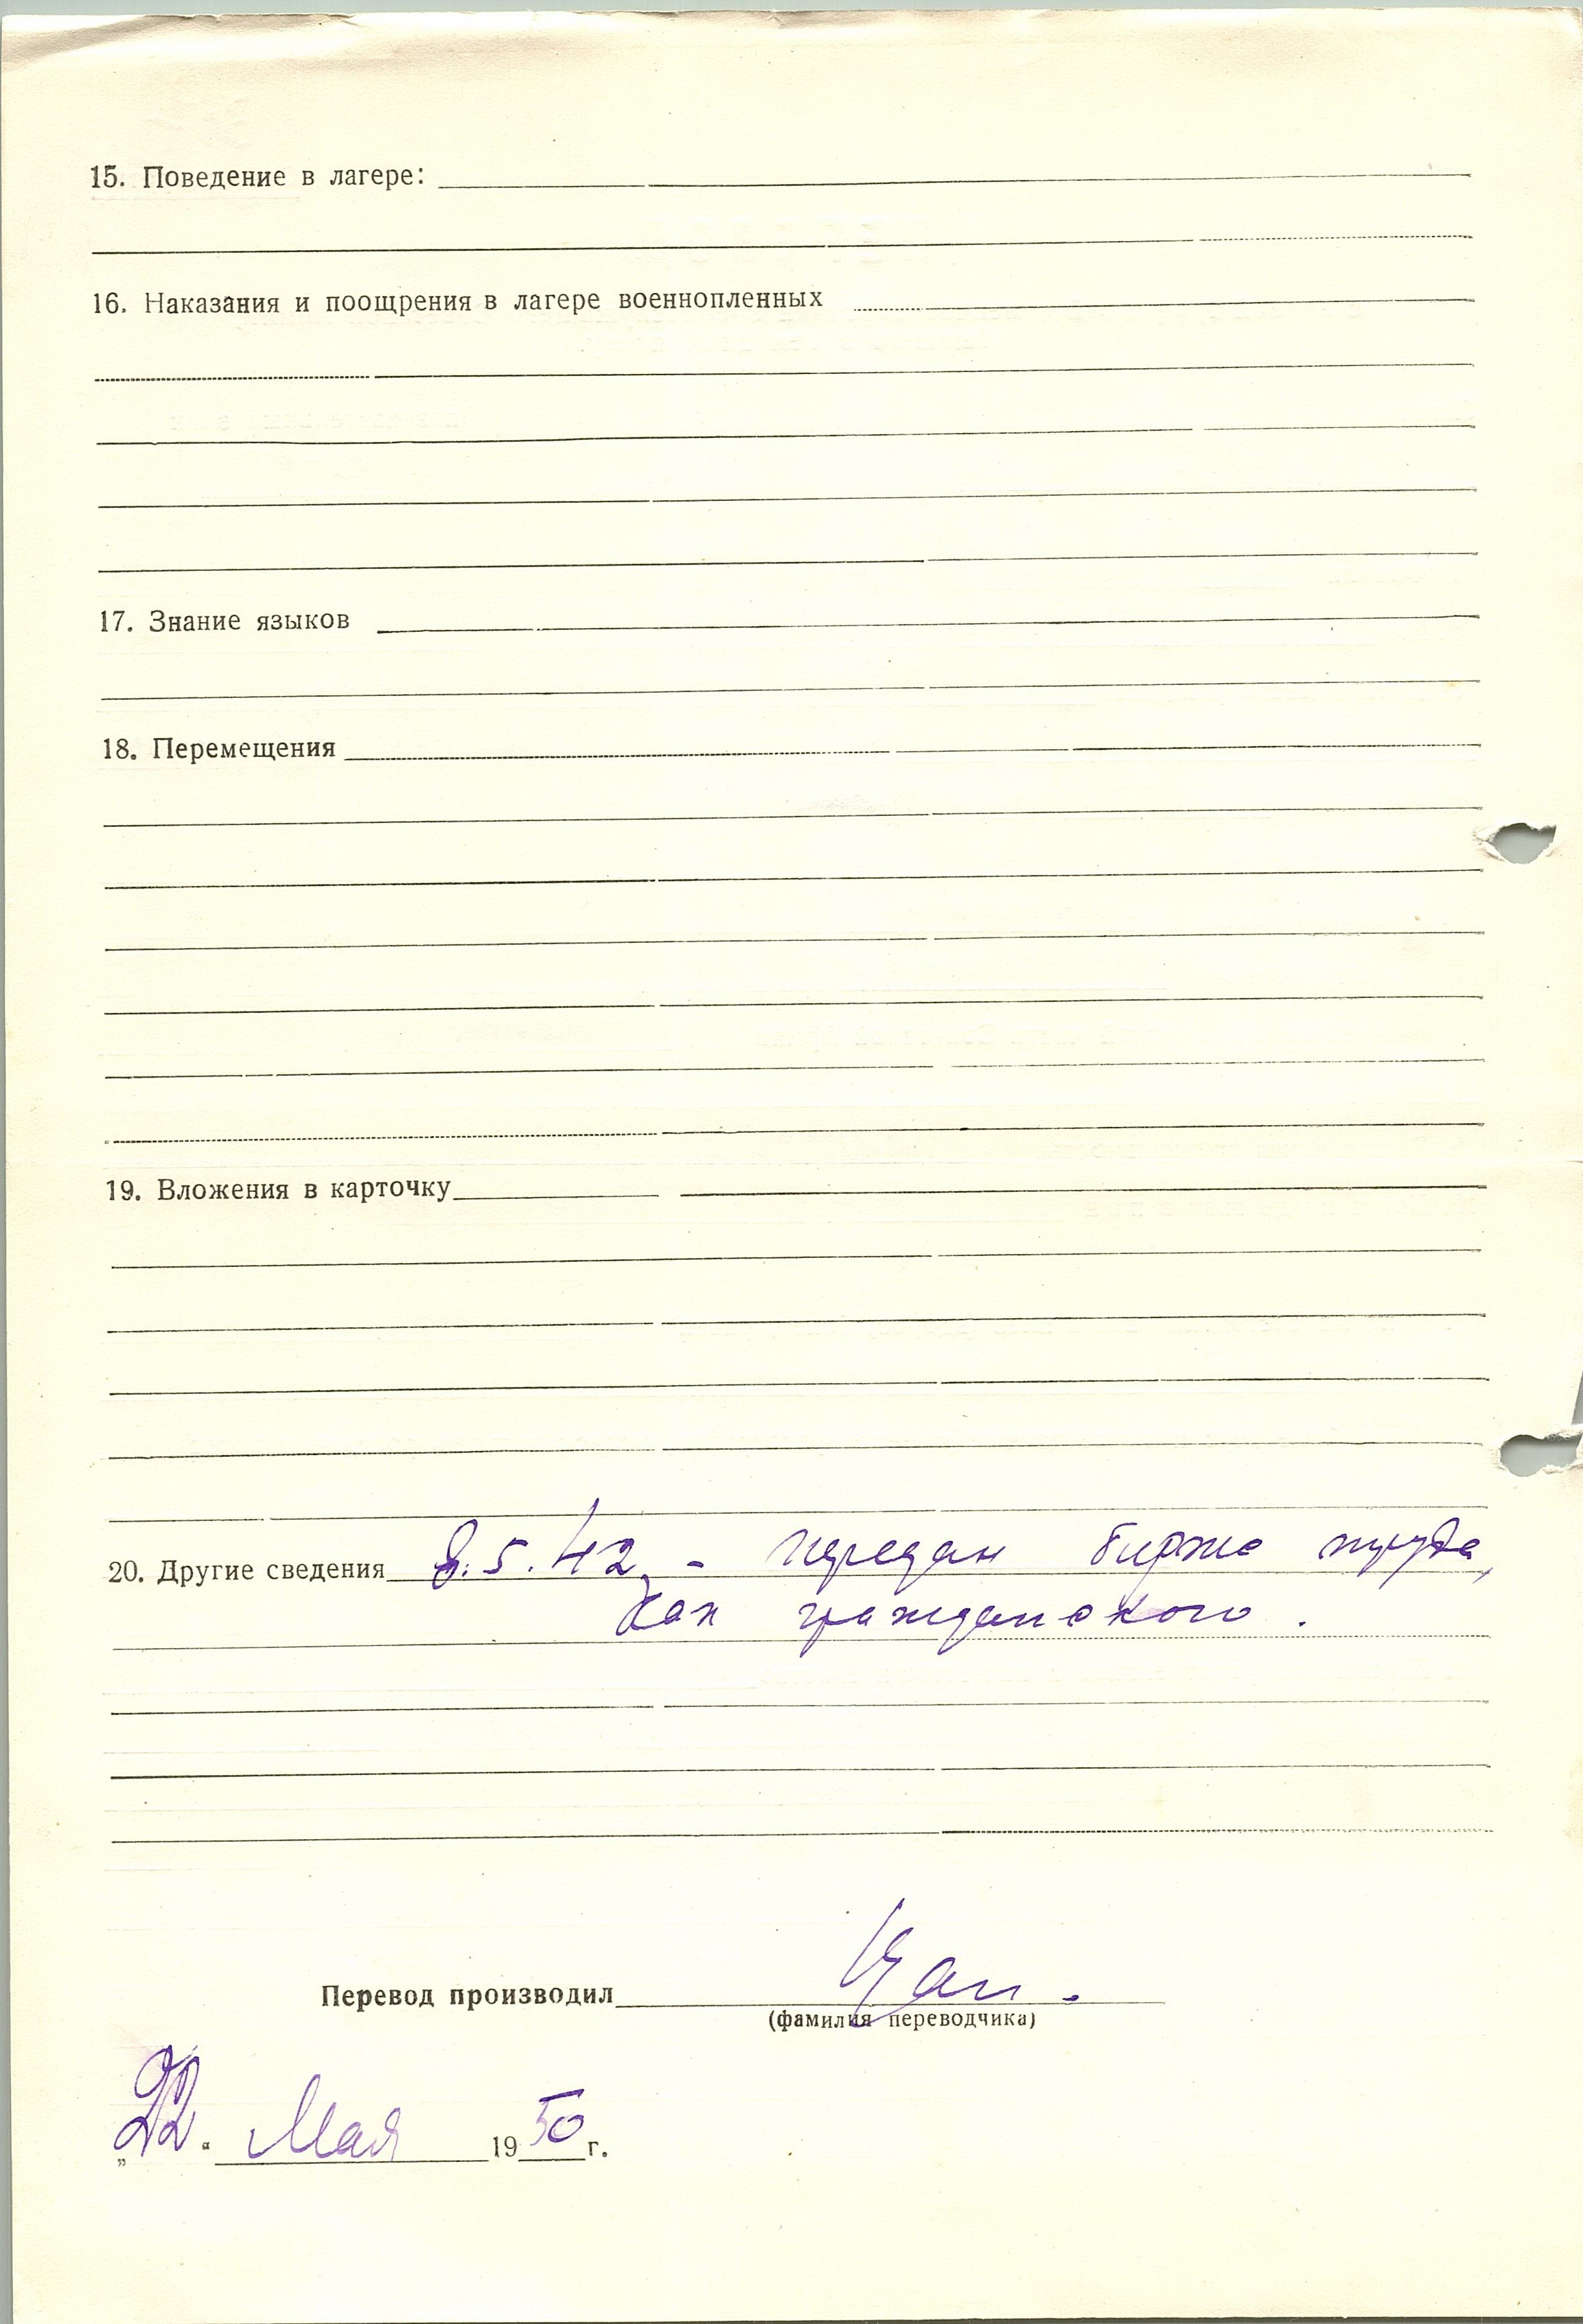 15. Поведение в лагере:
16. Наказания и поощрения в лагере военнопленных
17. Знание языков
18. Перемещения
19. Вложения в карточку
20. Другие сведения 8.5.42 - передан бирже труда,
как гражданского.
Перевод производил
(фамилия переводчика)
„22“ Мая 1950 г.